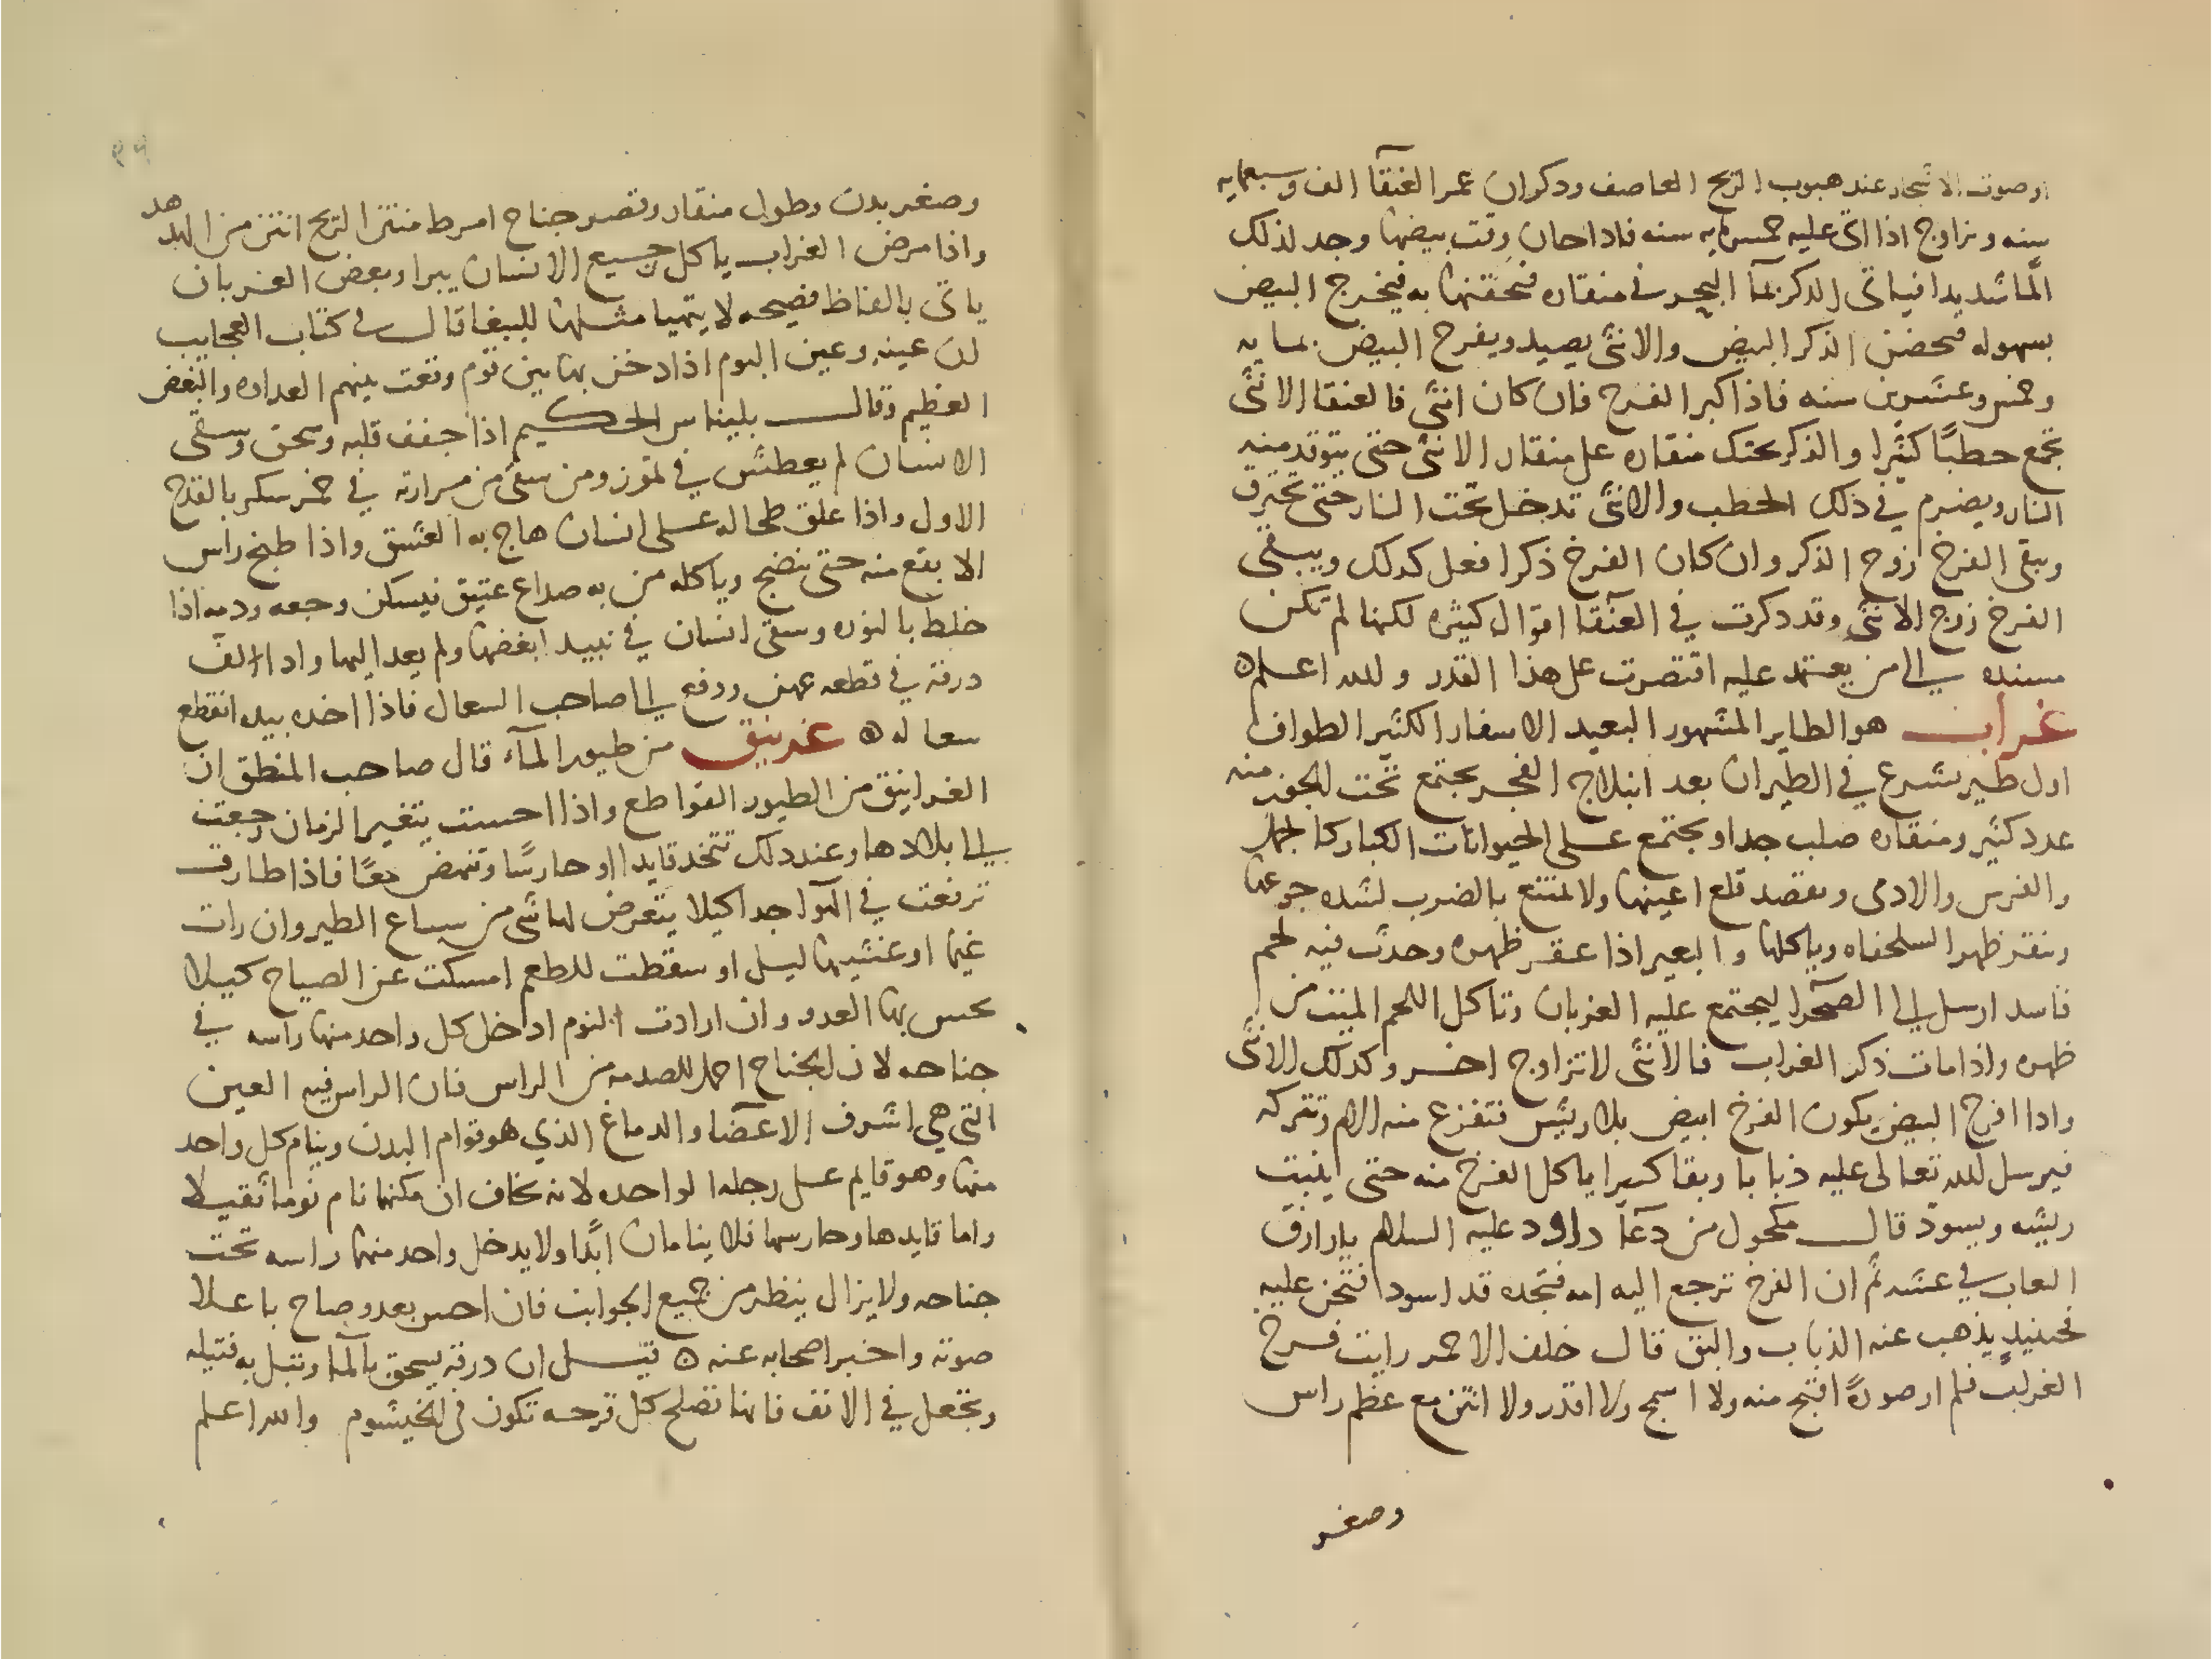 او صوت الاشجار عند هبوب الريح العاصف ودكر ان عمر العنقآ الف وسبعمايه
سنه وتزاوج اذا اتى عليه خمسمايه سنه فاداحان وقت بيضها وجد لذلك
الما شديدا فياتى الدكر بمآ البحر في منقاره فتحقنها به فيخرج البيض
بسهوله فيحضن الذكر البيض والانثى يصيد ويفرح البيض بمايه
وخمس وعشرين سنه فاذا كبر الفرخ فان كان انثى فالعنقا الانثى
تجمع حطبًا كثيرا والذكر يحتك منقاره على منقار الانثى حتى يتوقد منه
النار ويضرم في ذلك الحطب والانثى تدخل تحت النار حتى تحترق
ويبقى الفرخ زوج الذكر وان كان الفرخ ذكرا فعل كدلك ويبقى
الفرخ زوج الانثى وقد دكرت في العنقآ اقوال كثيره لكنها لم تكن
مسنده الى من يعتمد عليه اقتصرت على هذا القدر ولله اعلم ه
غراب هو الطاير المشهور البعيد الاسفار الكثير الطواف
اول طير يشرع في الطيران بعد انبلاج الفجر يجتمع تحت منه
عدد كثير ومنقاره صلب جدا ويجتمع على الحيوانات الكبار كالجمل
والفرس والادمى ويقصد قلع اعينها ولا تمتنع بالضرب لشده جوعها
وينقر ظهر السلحفاه وياكلها والبعير اذا عقر ظهره وحدث فيه لحم
فاسد ارسل الى الصحرا ليجتمع عليه الغربان وتاكل اللحم المنتن من
ظهره واذا مات ذكر الغراب فالانثى لا تزاوج اخر وكدلك الانثى
واذا افرخ البيض يكون الفرخ ابيض بلا ريش فتفزع منه الام وتتركه
فيرسل لله تعالى عليه ذبابا وبقا كثيرا ياكل الفرخ منه حتى ينبت
ريشه ويسود قال مكحول من دعآ داود عليه السلام يا رازق
النعاب في عشه ثم ان الفرخ ترجع اليه امه فتجده قد اسود فتحن عليه
فحينيذ يذهب عنه الذباب والبق قال خلف الاحمر رايت فرخ
الغراب فلم ار صورة اقبح منه ولا اسمج ولا اقذر ولا انتن مع عظم راس
وصغر
وصغر بدن وطول منقار وقصر جناح امرط منتن الريح انتن من الهدهد
واذا مرض الغراب ياكل جميع الانسان يبرا وبعض الغربان
ياتى بالفاظ فصيحه لا يتهيا مثلها للببغا قال في كتاب العجايب
لن عينه وعين البوم اذا دخن بها بين قوم وقعت بينهم العداوه والبغض
العظيم وقال بليناس الحكيم اذا جفف قلبه وسحق وسقى
الانسان لم يعطش في تموز ومن سقى من مرارته في خمر سكر بالقدح
الاول واذا علق طحاله على انسان هاج به العشق واذا طبخ راس
الابقع منه حتى ينضج وياكله من به صداع عتيق فيسكن وجعه ودمه اذا
خلط بالنوره وسقى انسان في نبيد ابغضها ولم يعد اليها واذا الف
درقه في قطعه عهن ودفع الى صاحب السعال فاذا اخده بيده انقطع
سعاله ه غرنيق من طيور المآء قال صاحب المنطق ان
الغرانيق من الطيور القواطع واذا احست بتغير الزمان رجعت
الى بلادها وعند دلك تتخد قايدا او حارسًا وتنهض معًا فاذا طارت
ترفعت في الهوآ جدا كيلا يتعرض لها شى من سباع الطير وان رات
غيما او غشيها ليل او سقطت للطعم امسكت عن الصياح كيلا
يحس بها العدو وان ارادت النوم ادخل كل واحد منها راسه في
جناحه لان الجناح احمل للصدمه من الراس فان الراس فيه العين
التي هي اشرف الاعضآ والدماغ الذي هو قوام البدن وينام كل واحد
منها وهو قايم على رجله الواحده لانه يخاف ان مكنها نام نوما ثقيلا
واما قايدها وحارسها فلا ينامان ابدًا ولا يدخل واحد منهما راسه تحت
جناحه ولا يزال ينظر من جميع الجوانب فان احس بعدو صاح باعلا
صوته واخبر اصحابه عنه ه قيل ان درقه يسحق بالمآ وتبل به فتيله
وتجعل في الانف فانها تصلح كل قرحه تكون في الخيشوم والله اعلم